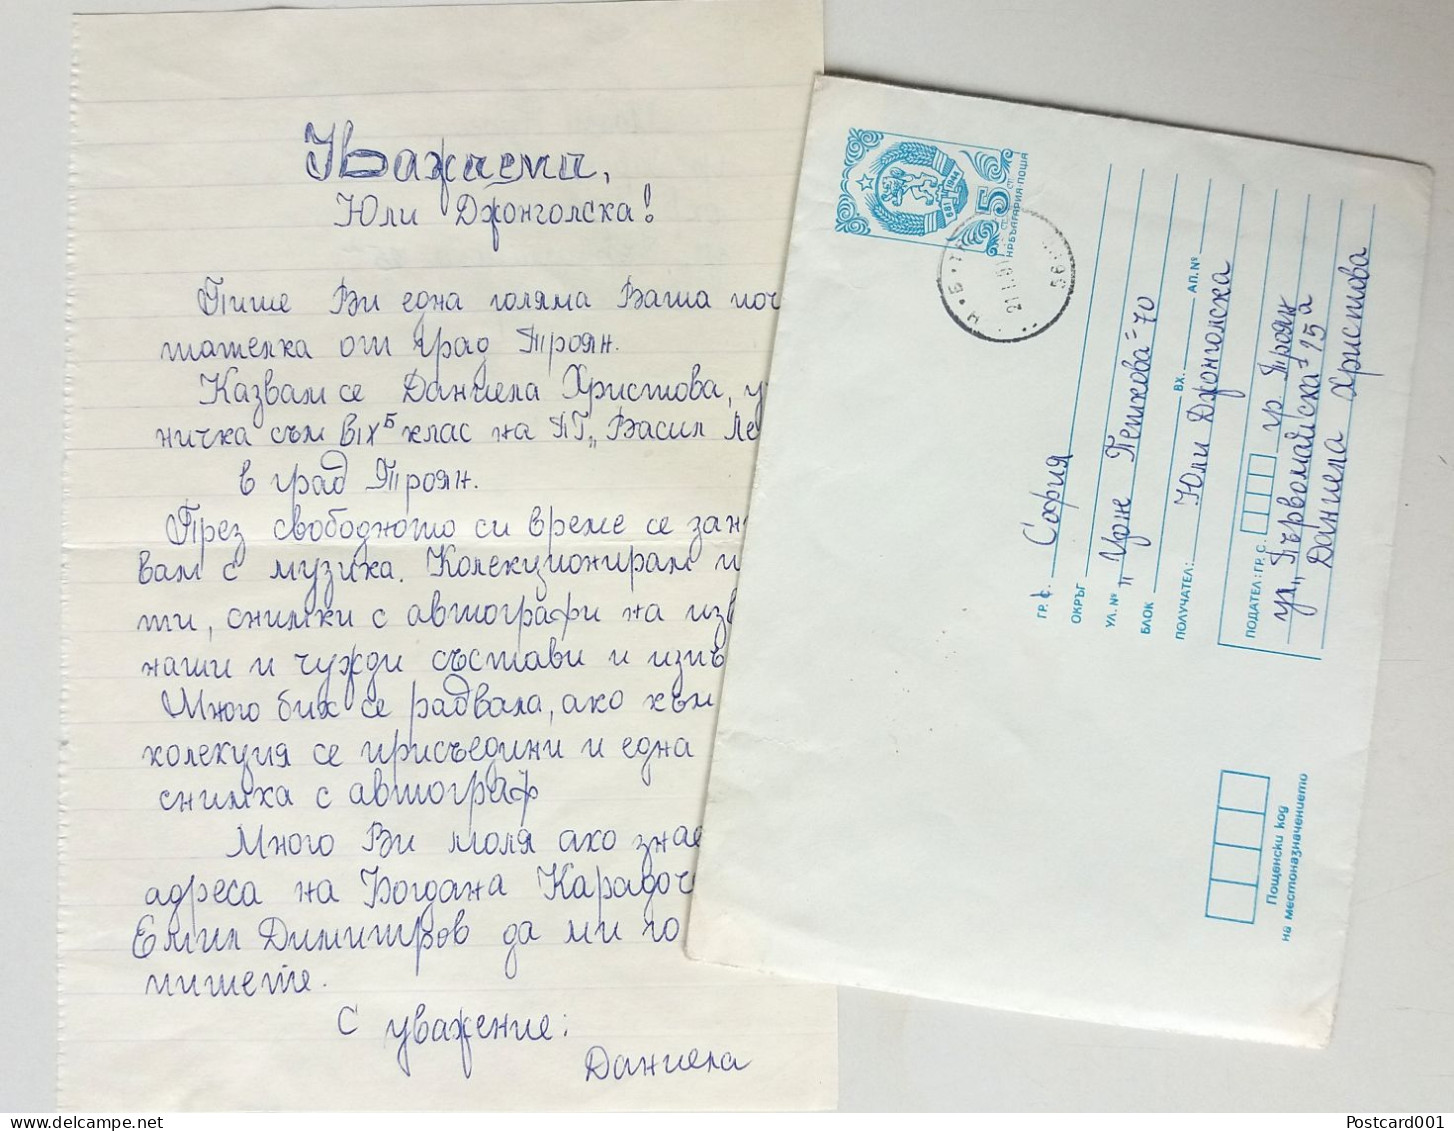 Уважаеми,
Юли Джонголска!
Пише Ви една голяма Ваша поч
тателка от град Троян.
Казвам се Даниела Христова, у
ничка съм в IX Б клас на ПГ „Васил Ле
в град Троян.
През свободното си време се зани
вам с музика. Колекционирам и
ти, снимки с автографи на изв
наши и чужди състави и изпъ
Много бих се радвала, ако към
колекция се присъедини и една
снимка с автограф
Много Ви моля ако знае
адреса на Богдана Карадоч
Емил Димитров да ми го
пишете.
С уважение:
Даниела
681 1944
5 СТ
НР БЪЛГАРИЯ·ПОЩА
ГР. с. София
ОКРЪГ
УЛ. № „Урже Пешкова" 70
БЛОК ВХ. АП. №
ПОЛУЧАТЕЛ: Юли Джонголска
ПОДАТЕЛ: ГР. С. гр. Троян
ул. „Първомайска" 15а
Даниела Христова
Пощенски код
на местоназначението
Postcard001